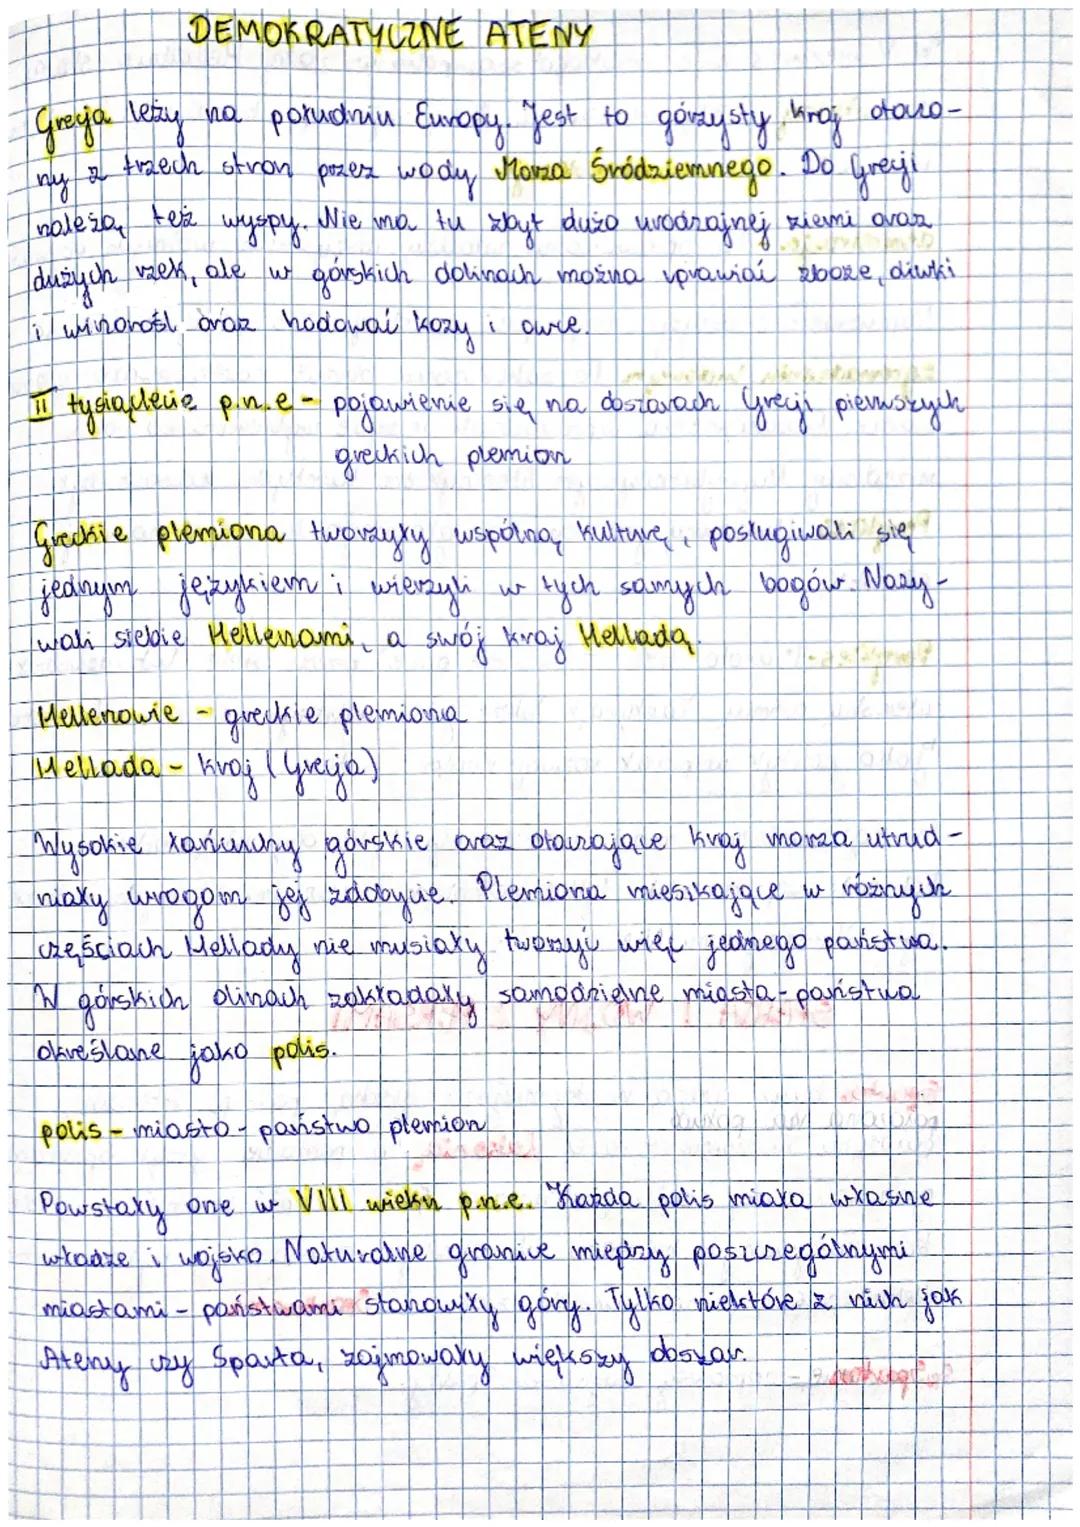 DEMOKRATYCZNE ATENY
Grecja leży na południu Europy. Jest to górzysty kraj otoczo-
ny z trzech stron przez wody Morza Śródziemnego. Do Grecji
należą też wyspy. Nie ma tu zbyt dużo urodzajnej ziemi oraz
dużych rzek, ale w górskich dolinach można uprawiać zboże, oliwki
i winorośl oraz hodować kozy i owce.
II tysiąclecie p.n.e - pojawienie się na obszarach Grecji pierwszych
greckich plemion
Greckie plemiona tworzyły wspólną kulturę, posługiwali się
jednym językiem i wierzyli w tych samych bogów. Nazy-
wali siebie Hellenami, a swój kraj Helladą.
Hellenowie - greckie plemiona
Hellada - kraj (Grecja)
Wysokie łańcuchy górskie oraz otaczające kraj morza utrud-
niały wrogom jej zdobycie. Plemiona mieszkające w różnych
częściach Hellady nie musiały tworzyć więc jednego państwa.
W górskich olinach zakładały samodzielne miasta-państwa
określane jako polis.
polis - miasto - państwo plemion
Powstały one w VIII wieku p.n.e. Każda polis miała własne
władze i wojsko. Naturalne granice między poszczególnymi
miastami - państwami stanowiły góry. Tylko niektóre z nich jak
Ateny czy Sparta, zajmowały większy obszar.